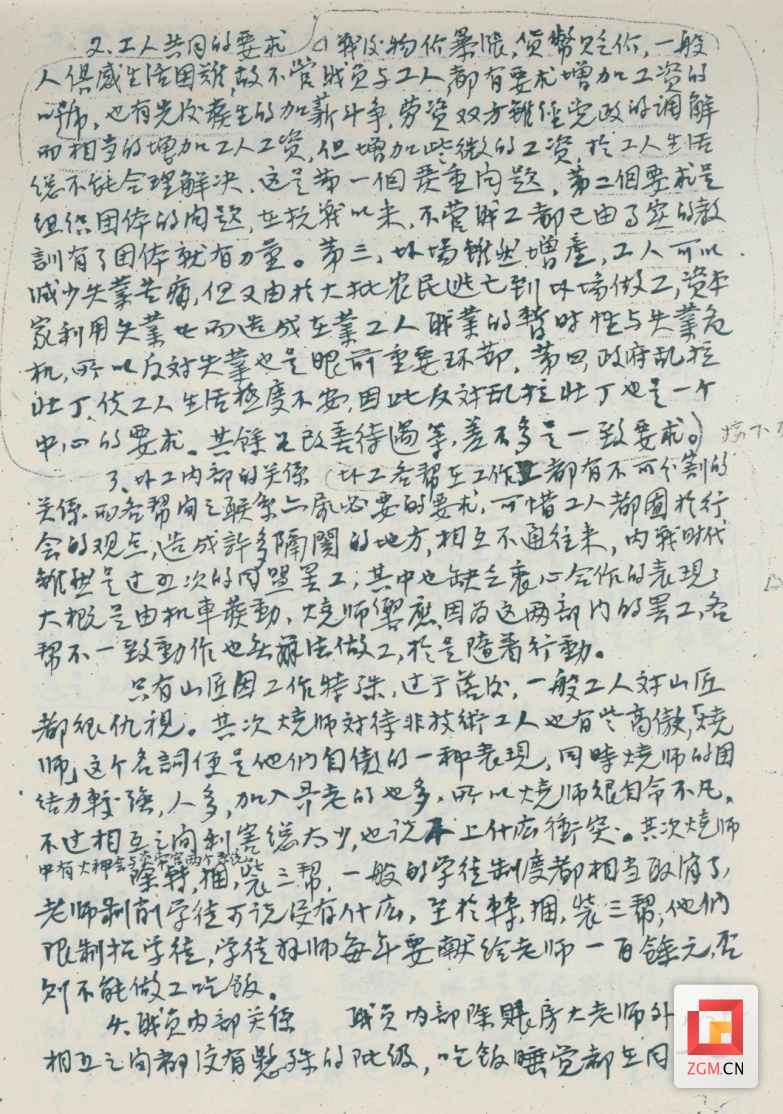 2、工人共同的要求 （戰后物价暴漲，貨幣貶价，一般
人俱感生活困难，故不管職员与工人，都有要求增加工資的
呼声，也有先后发生的加薪斗争，劳資双方雖經党政的調解
而相当的增加工人工資，但增加些微的工資，於工人生活
總不能合理解决，这是第一個嚴重问題，第二個要求是
组织团体的问題，在抗戰以来，不管職工都已由了客的教
訓有了团体就有力量。第三、坏場雖然增產，工人可以
减少失業苦痛，但又由於大批农民逃亡到坏場做工，資本
家利用失業 而造成在業工人職業的暂时性与失業危
机，所以反对失業也是眼前重要环节，第四，政府乱拉
壮丁，使工人生活極度不安，因此反对乱拉壮丁也是一个
中心的要求。其餘 改善待遇等，差不多是一致要求。）
3、坏工内部的关係 坏工各帮在工作上都有不可分割的
关係，而各帮间之联系亦属必要的要求，可惜工人都囿於行
会的观点，造成許多隔閡的地方，相互不通往来，内戰时代
雖然是过五次的同盟罢工，其中也缺乏衷心合作的表現，
大概是由机車發動，燒師響應，因为这两部内的罢工，各
帮不一致動作也无辦法做工，於是随着行動。
只有山匠因工作特殊，过于落后，一般工人对山匠
都很仇視。其次燒師对待非技術工人也有些高傲，“燒
师”这个名詞便是他們自傲的一种表現，同時燒师的团
结力較強，人多，加入 老的也多，所以燒师很自命不凡，
不过相互之间利害總太少，也說不上什么衝突。其次燒师
中有火神会与炎帝宫两个系统
除转，捆，装三帮，一般的学徒制度都相当取消了，
老师剥削学徒可说没有什么，至於转，捆，装三帮，他们
限制招学徒，学徒拜师每年要献给老师一百餘元，否
则不能做工吃飯。
4、職员内部关係 職员内部除賬房大老师外，
相互之间都没有懸殊的阶级，吃饭睡觉都在同
ZGM.CN